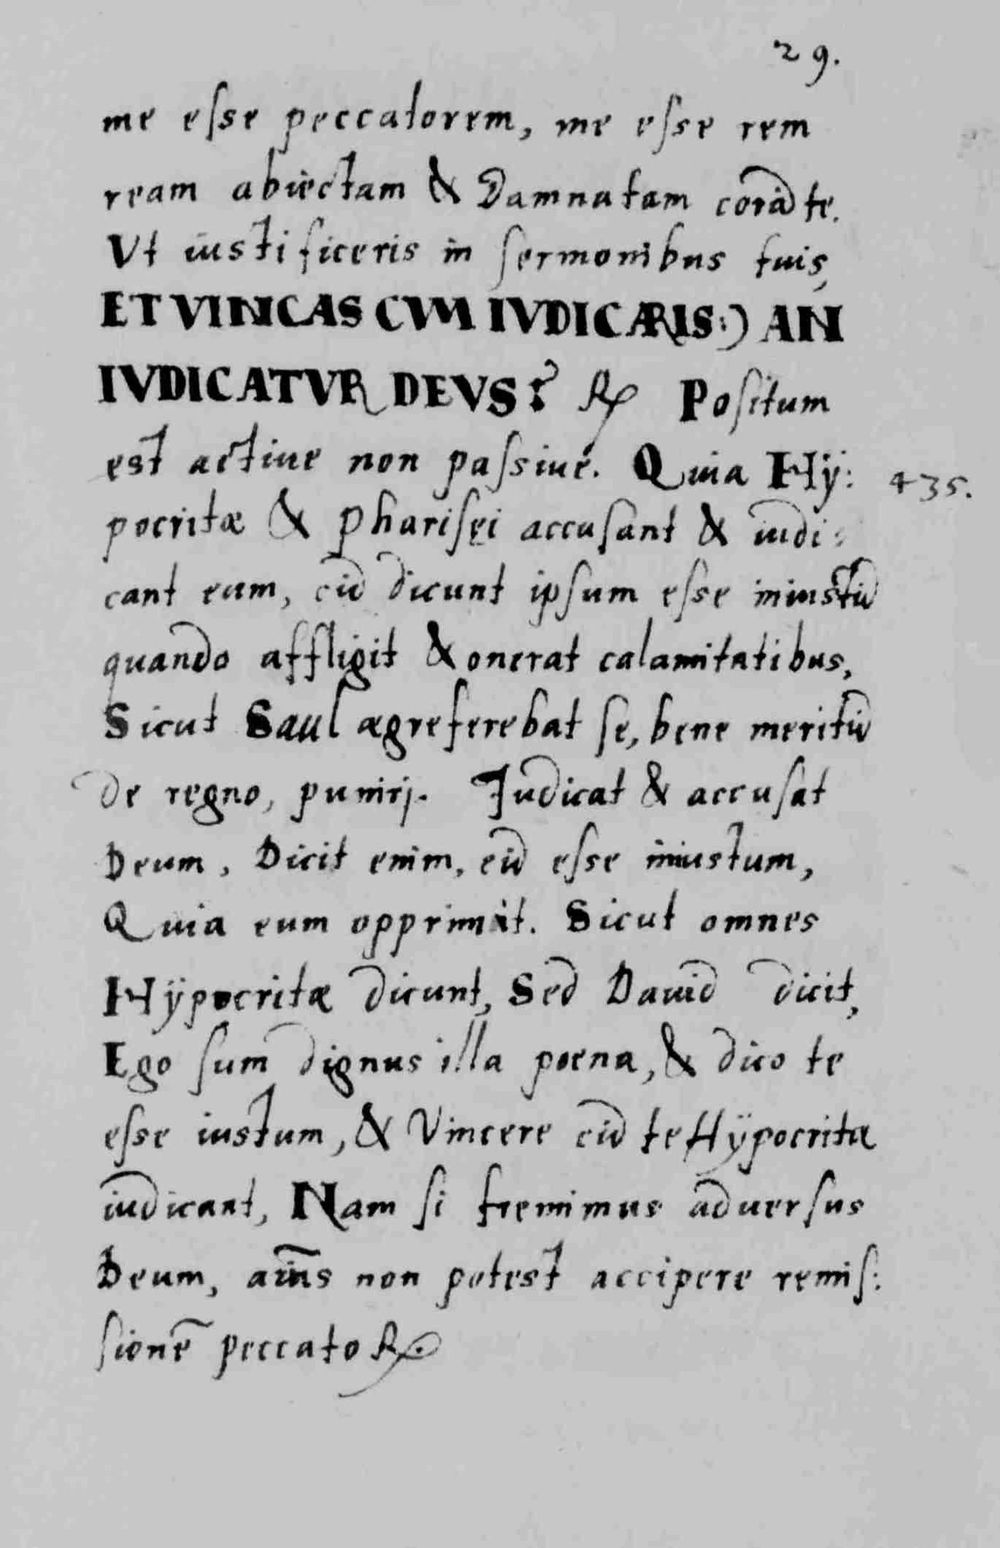 29.
me esse peccatorem, me esse rem
ream abiectam & Damnatam corā te.
Vt iustificeris in sermonibus tuis,
ET VINCAS CVM IVDICARIS:) AN
IVDICATVR DEVS? ℞ Positum
est actiue non passiué. Quia Hÿ:
pocritæ & Pharisęi accusant & iudi: 435.
cant eum, cū dicunt ipsum esse iniustū
quando affligit & onerat calamitatibus,
Sicut Saul ægre ferebat se, bene meritū
de regno, punirj. Judicat & accusat
Deum, Dicit enim, eū esse iniustum,
Quia eum opprimit. Sicut omnes
Hÿpocritæ dicunt, Sed Dauid dicit,
Ego sum dignus illa poena, & dico te
esse iustum, & Vincere cū te Hÿpocritæ
iudicant, Nam si fremimus aduersus
Deum, aīns non potest accipere remis:
sionē peccatoꝝ.